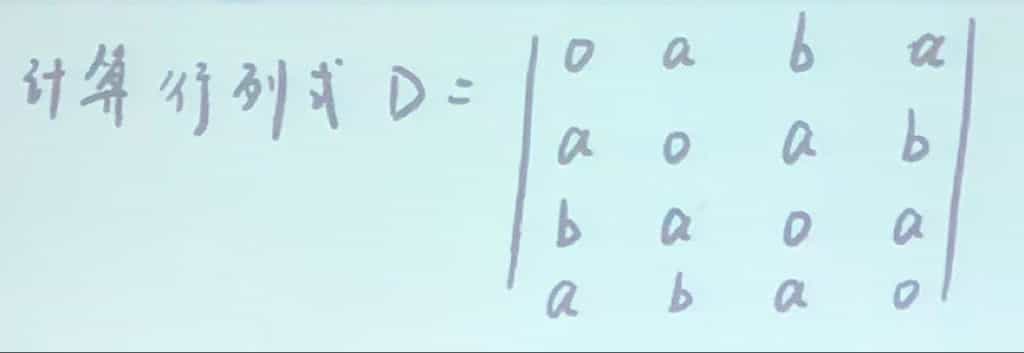 计算行列式 D = | 0 a b a |
| a 0 a b |
| b a 0 a |
| a b a 0 |